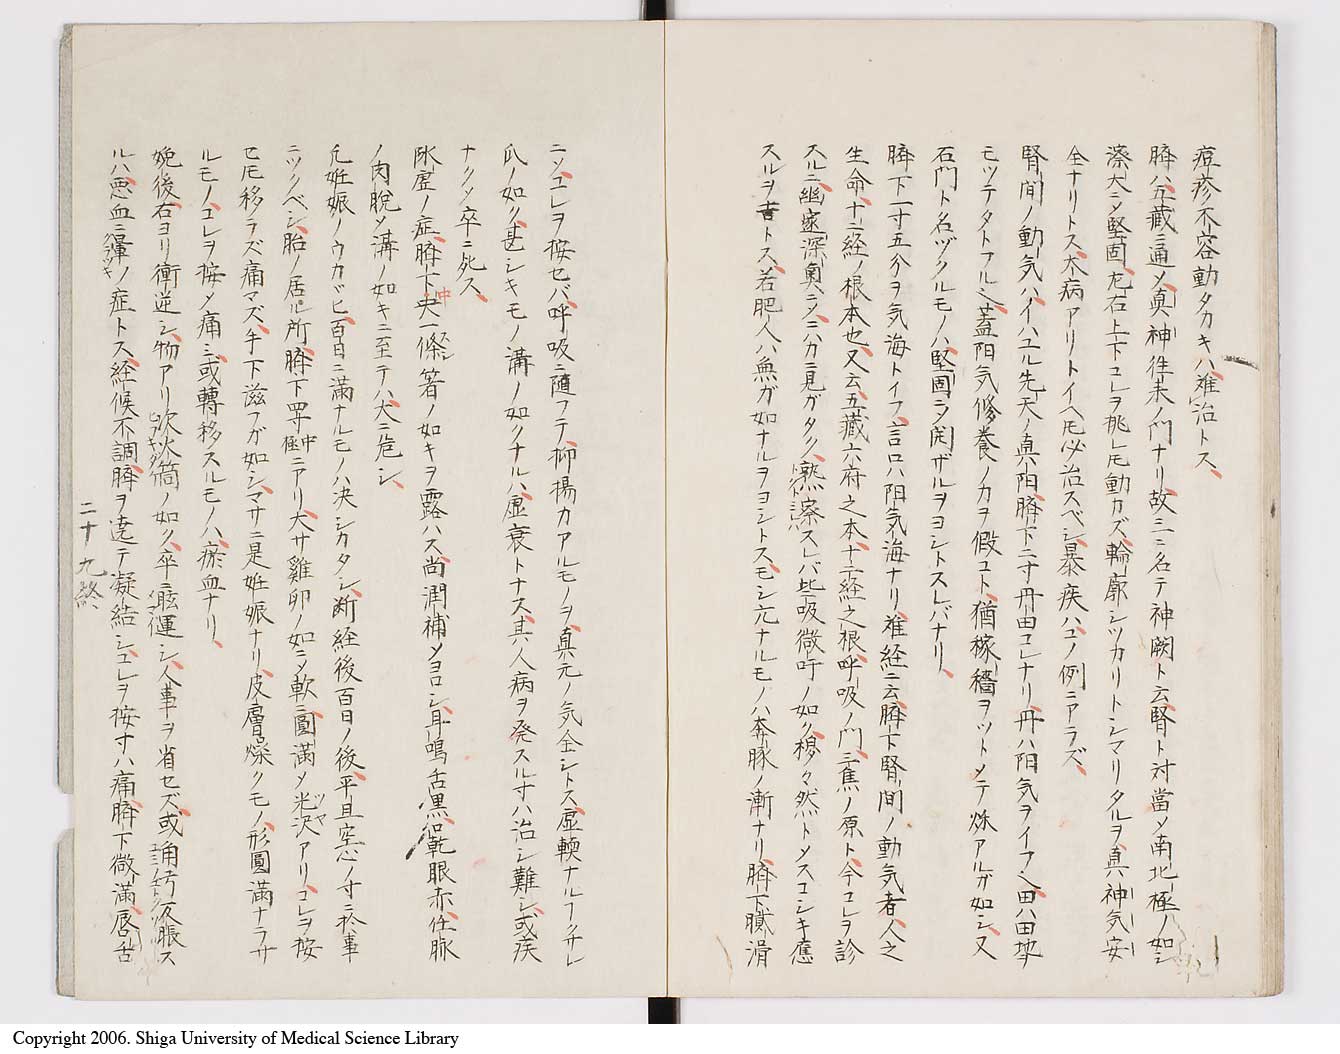 痘疹ノ不容動タカキハ難治トス
臍ハ五藏ニ通メ真神往来ノ門ナリ故ニニ名テ神闕ト云腎ト対當メ南北極ノ如シ
深大ニメ堅固左右上下コレヲ挑レ𪜈動カズ輪廓シツカリトシマリタルヲ真神気安
全ナリトス大病アリトイヘ𪜈必治スベシ暴疾ハコノ例ニアラズ
腎間ノ動気ハイハユル先天ノ真阳臍下二寸丹田コレナリ丹ハ阳気ヲイフ也田ハ田地
モツテタトフル也蓋阳気修養ノカヲ假コト猶稼穡ヲツトメテ烁アルガ如シ又
石門ト名ヅクルモノハ堅固ニメ闭ザルヲヨシトスレバナリ
臍下一寸五分ヲ気海トイフ言ロハ阳気ノ海ナリ难経ニ云臍下腎間ノ動気者人之
生命十二経ノ根本也又云五藏六府之本十二経之根呼吸ノ門三焦ノ原ト今コレヲ診
スルニ幽邃深奥ニメニハカニ見ガタク熟察スレバ呰吸微吁ノ如ク穆々然トメスコシキ應
スルヲ吉トス若肥人ハ無ガ如ナルヲヨシトスモシ亢ナルモノハ奔豚ノ漸ナリ臍下膩滑
ニメコレヲ按セバ呼吸ニ随フテ抑揚カアルモノヲ真元ノ気全シトス虚軟ナルフクサレ
爪ノ如ク甚シキモノ溝ノ如クナルハ虚衰トナス其人病ヲ発スル寸ハ治シ難シ或疾
ナクメ卒ニ死ス
脉虚ノ症臍下中央一條筯ノ如キヲ露ハス尚潤補メヨロシ耳鳴舌黒唇乾眼赤任脉
ノ肉脱メ溝ノ如キニ至テハ大ニ危シ
凡妊娠ノウカヾヒ百日ニ満ナルモノハ决シカタシ断経後百日ノ後平旦空心ノ寸ニ於事
ニツクベシ胎ノ居ル所臍下四寸中極ニアリ大サ雞卵ノ如ニメ軟ニ圓満メ光沢ツヤアリコレヲ按
セ𪜈移ラズ痛マズ手下滋フガ如シマサニ是妊娠ナリ皮膚燥クモノ形圓満ナラサ
ルモノコレヲ按メ痛ミ或轉移スルモノハ瘀血ナリ
娩後右ヨリ衝逆シ物アリ吹火筒ノ如ク卒ニ眩運シ人事ヲ省セズ或角弓反脹ス
ルハ悪血ニ運ノ症トス経候不調臍ヲ遶テ凝結シコレヲ按寸ハ痛臍下微満唇舌
二十九終